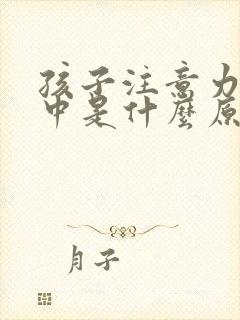 孩子注意力
中是什麼原
月子